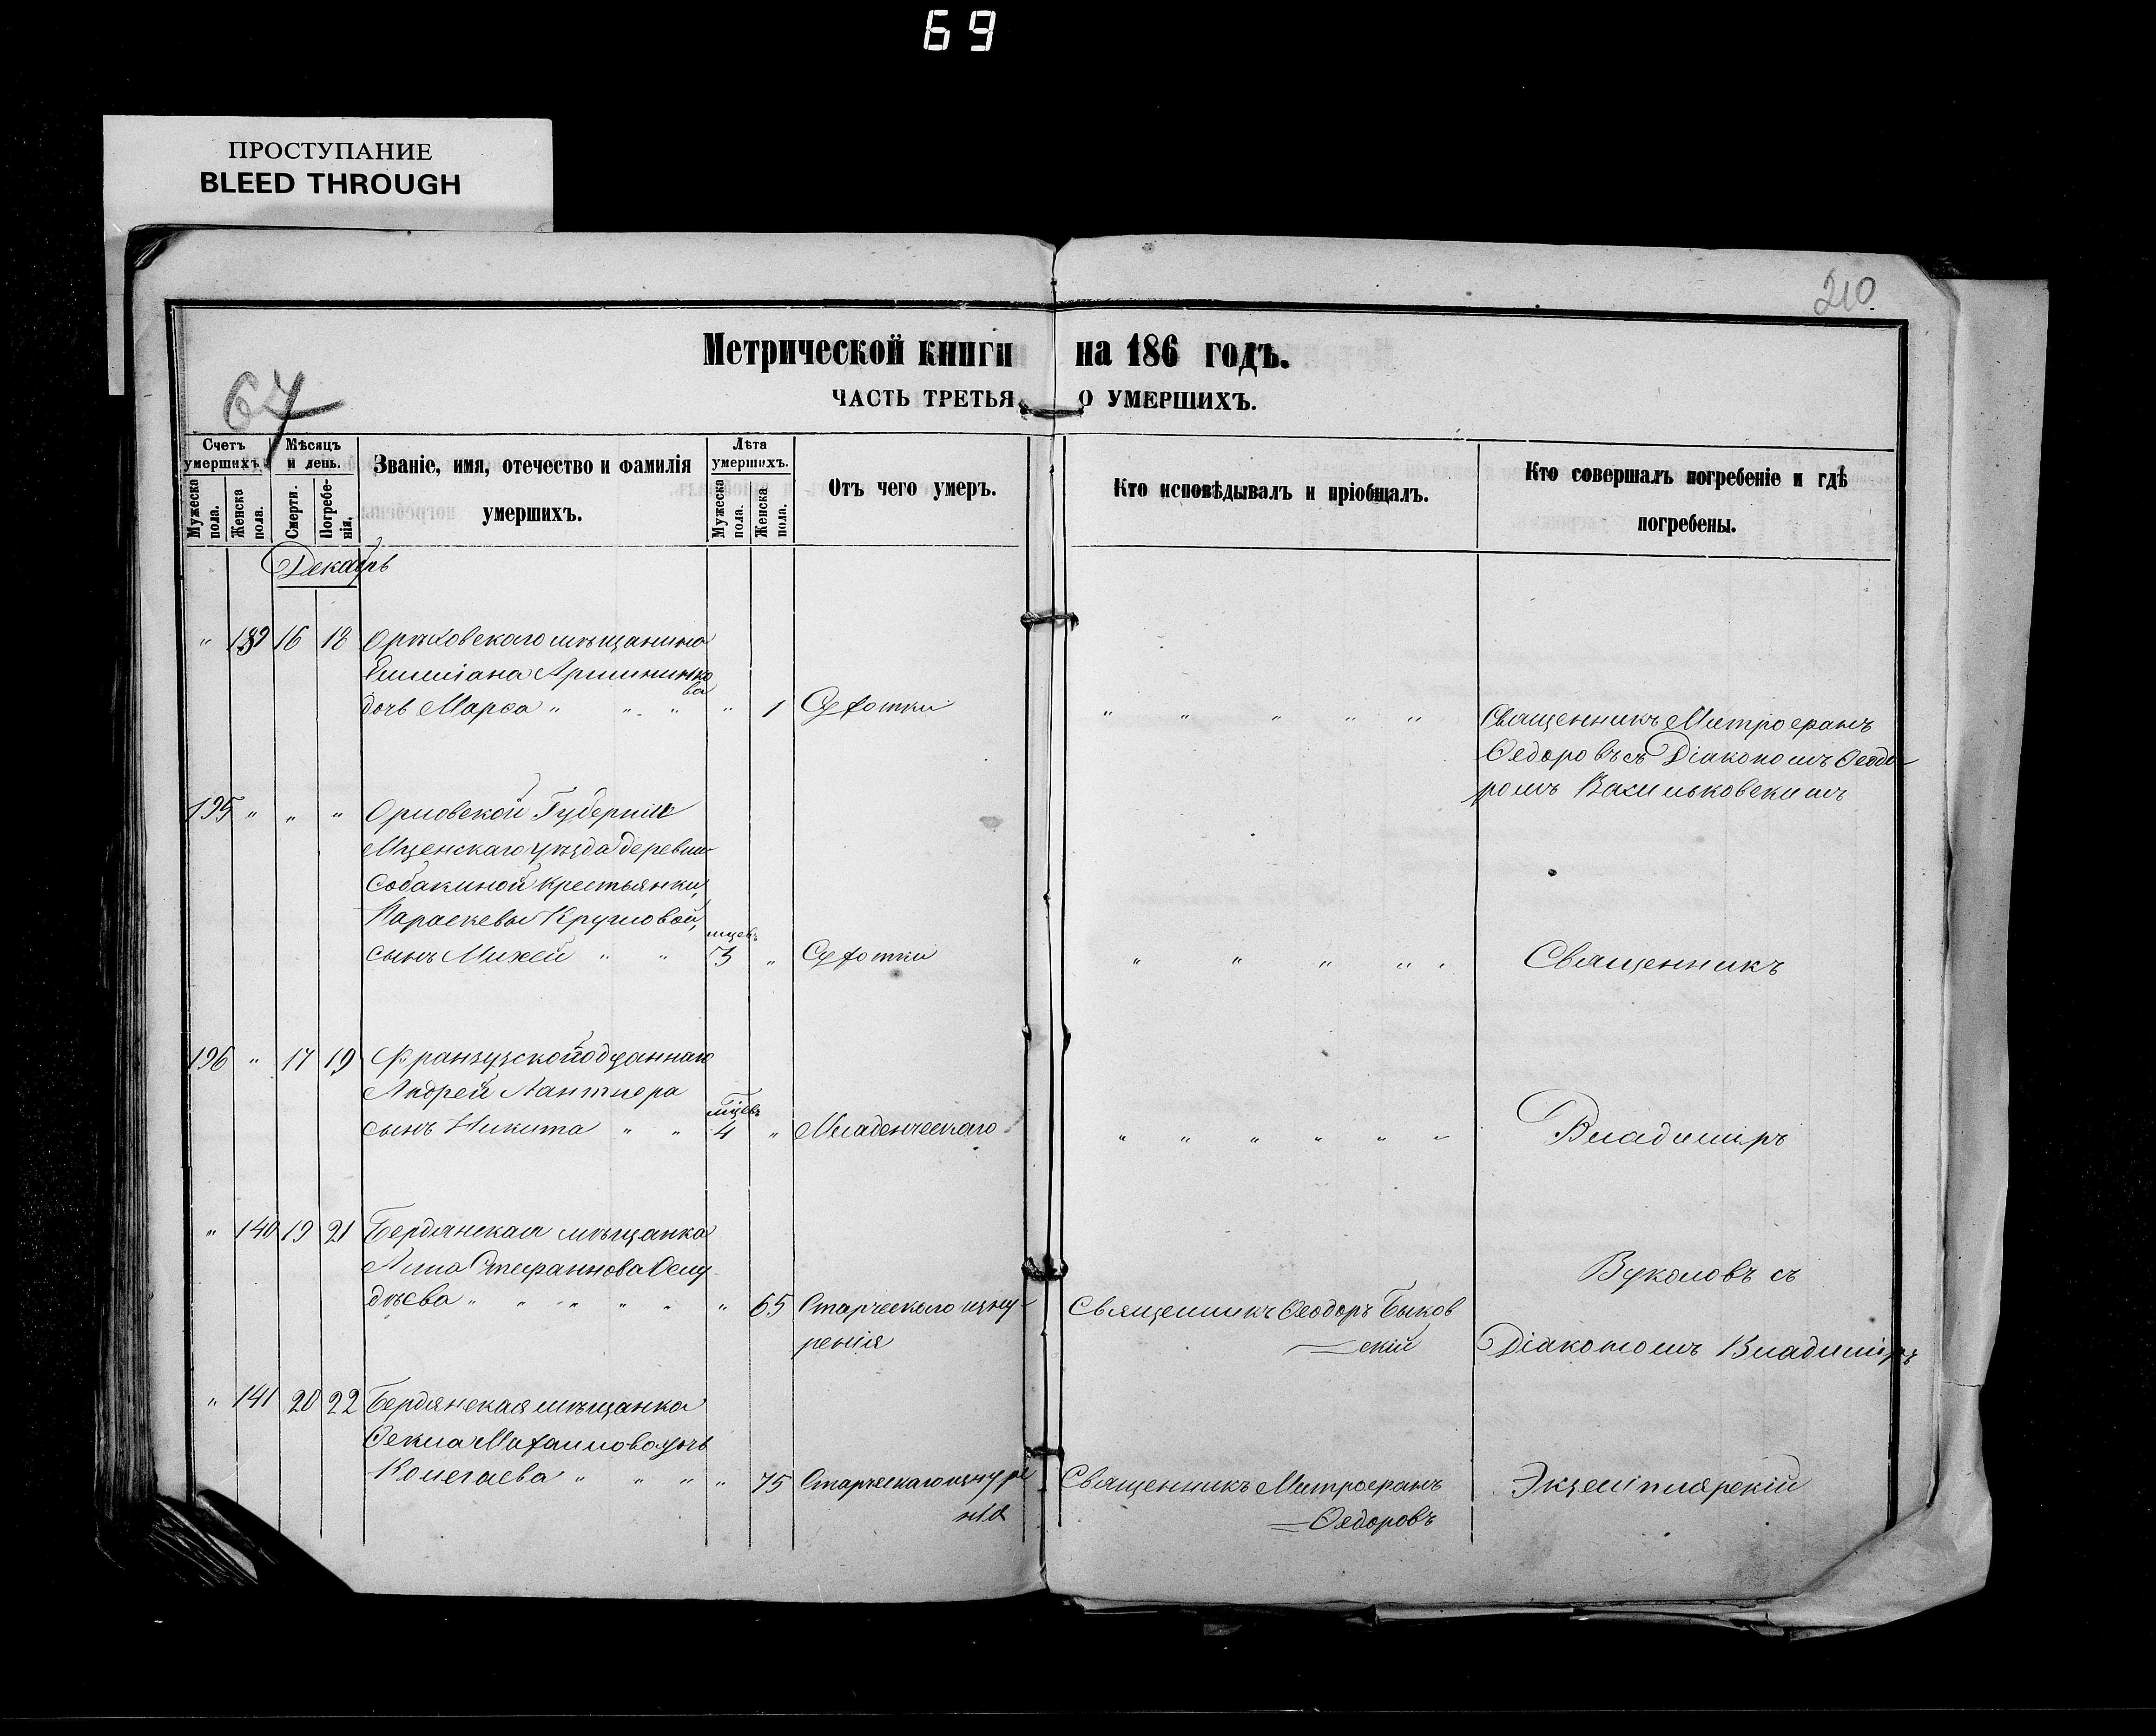 69
ПРОСТУПАНИЕ
BLEED THROUGH
210.
67
Метрической книги на 186 годъ.
ЧАСТЬ ТРЕТЬЯ, О УМЕРШИХЪ.
Счетъ умершихъ.
Мужеска пола.
Женска пола.
Мѣсяцъ и день.
Смерти.
Погребенія.
Званіе, имя, отечество и фамилія
умершихъ.
Лѣта умершихъ.
Мужеска пола.
Женска пола.
Отъ чего умеръ.
Кто исповѣдывалъ и пріобщалъ.
Кто совершалъ погребеніе и гдѣ
погребены.
Декабрь
" 139 16 18 Орѣховскаго мѣщанина
Емиліана
дочь Марѳа " " " " 1 Сухотки " " " " "
Священникъ Митрофанъ
Ѳедоровъ съ Діакономъ Ѳеодо-
ромъ Васильковскимъ
195 " " " Орловской Губерніи
Мценскаго уѣзда деревни
Собакиной крестьянки,
Параскевы Кругловой,
сынъ Михей " " мцевъ 3 " Сухотки " " " " "
Священникъ
196 " 17 19 Французскоподданнаго
Андрей Лантиера
сынъ Никита " " мцевъ 4 " Младенческаго " " " " " "
Владиміръ
" 140 19 21 Бердянская мѣщанка
Анна Стефаннова
дѣева " " " " " " 65 Старческаго изну-
ренія
Священникъ Ѳеодоръ Быков
скій
Вуколовъ съ
Діакономъ Владиміръ
" 141 20 22 Бердянская мѣщанка
Ѳекла Михаиловa дочь
" " " " 75 Старческаго изнуре
нія
Священникъ Митрофанъ
Ѳедоровъ
Экземплярскій